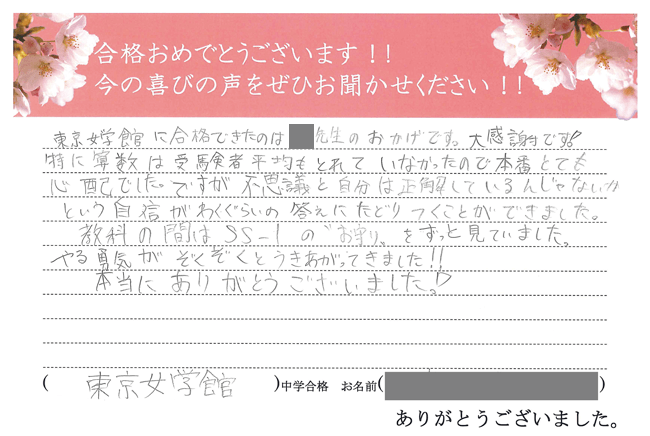 合格おめでとうございます!!
今の喜びの声をぜひお聞かせください!!
東京女学館に合格できたのは 先生のおかげです。大感謝です!
特に算数は受験者平均もとれていなかったので本番とても
心配でした。ですが不思議と自分は正解しているんじゃないか
という自信がわくぐらいの答えにたどりつくことができました。
教科の間はSS-1の"お守り"をずっと見ていました。
やる勇気がぞくぞくとうきあがってきました!!
本当にありがとうございました。♡
(東京女学館)中学合格 お名前( )
ありがとうございました。